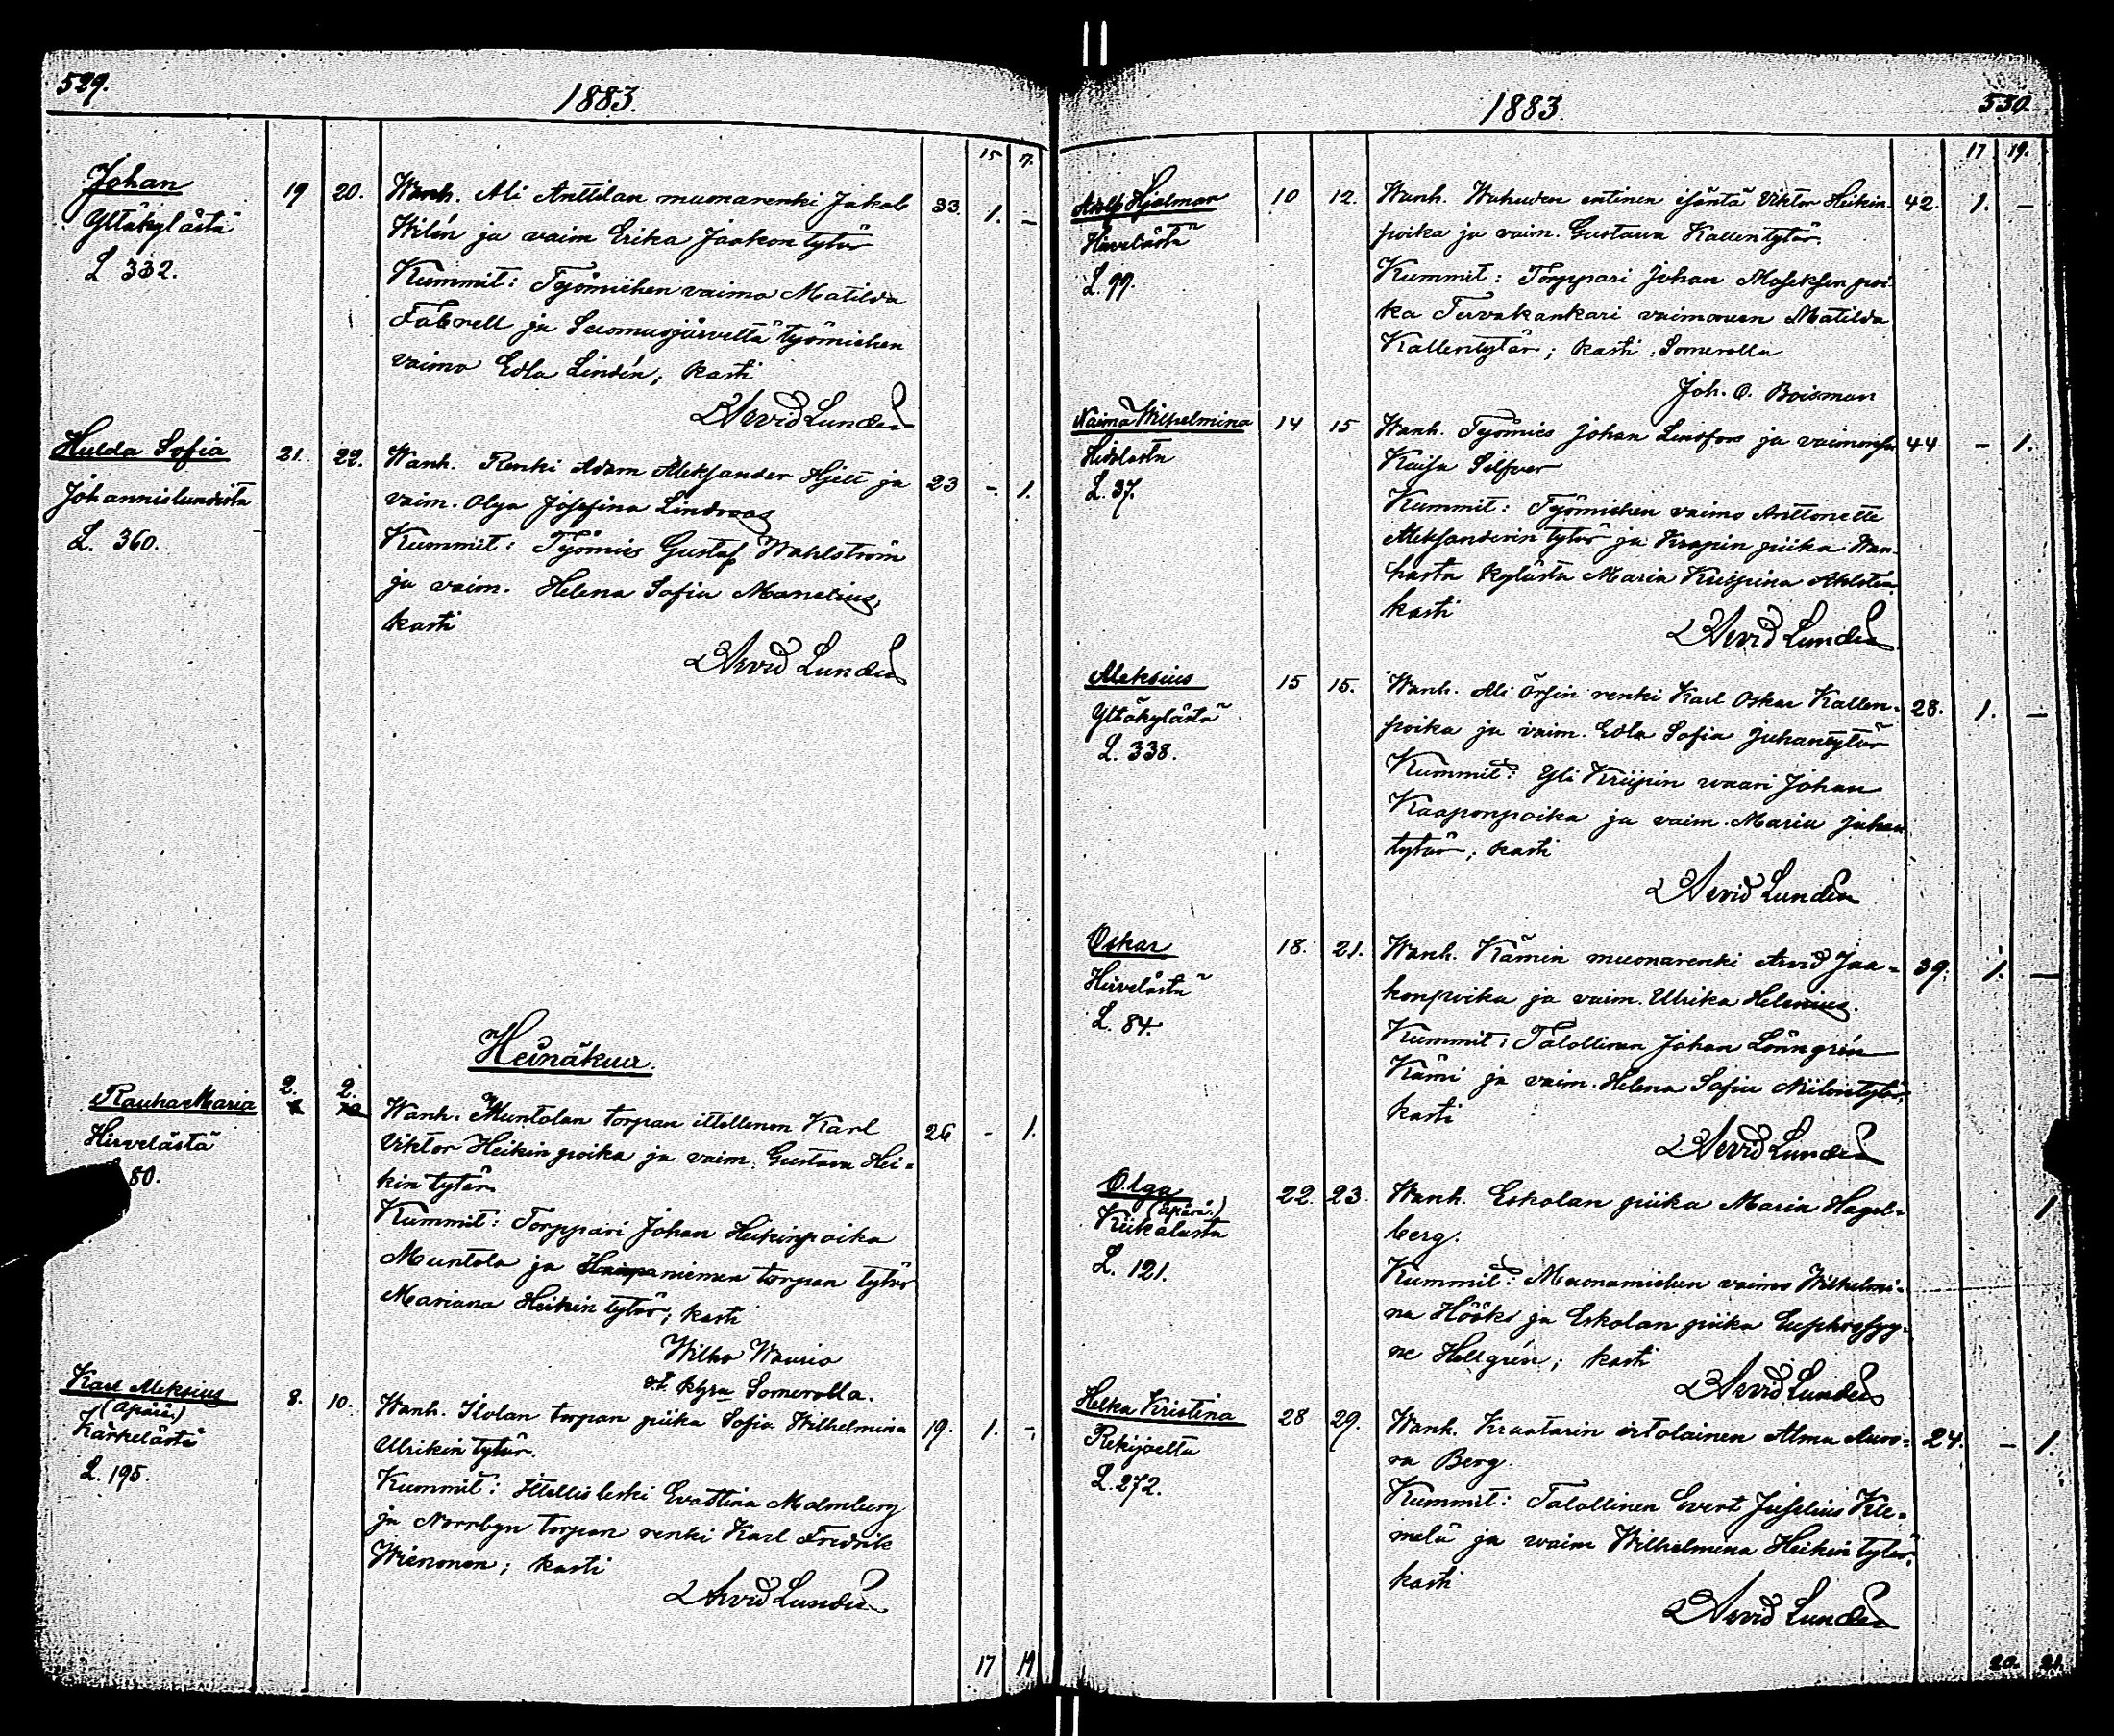 529.
1883.
15 17.
Johan
Yltäkylästä
L. 332.
19 20.
Wanh. Ali Anttilan muonarenki Jakob
Wilén ja vaim Erika Jaakontytär
Kummit: Työmiehen vaimo Matilda
Fabrell ja Suomusjärveltä työmiehen
vaimo Edla Lindén; kasti
Arvid Lundén
33. 1. -
Hulda Sofia
Johannislundista
L. 360.
21. 22.
Wanh. Renki Adam Aleksander Hjelt ja
vaim. Olga Josefina Lindroos
Kummit: Työmies Gustaf Wahlström
ja vaim. Helena Sofia Manelius,
kasti
Arvid Lundén
23 -. 1.
Heinäkuu.
Rauha Maria
Hirvelästä
80.
2. 2.
Wanh. Muntolan torpan itsellinen Karl
Viktor Heikinpoika ja vaim. Gustava Hei-
kintytär
Kummit: Torppari Johan Heikinpoika
Muntola ja Haapaniemen torpan tytär
Mariana Heikintytär; kasti
Wilho Waurio
v.t. kplra Somerolla.
26 - 1.
Karl Aleksius
(äpärä.)
Kärkelästä
L. 195.
8. 10.
Wanh. Ilolan torpan piika Sofia Wilhelmina
Ulrikintytär.
Kummit: Itsellisleski Eva Stina Malmberg
ja Norrbyn torpan renki Karl Fredrik
Wienonen; kasti
Arvid Lundén
19. 1. -
17 19
1883.
530.
17 19.
Adolf Hjalmar
Hirvelästä
L. 99.
10 12.
Wanh. Wahuven entinen isäntä Viktor Heikin-
poika ja vaim. Gustava Kallentytär.
Kummit: Torppari Johan Moseksen poi-
ka Tervakankari vaimoneen Matilda
Kallentytär; kasti Somerolla
Joh. O. Boisman
42. 1. -
Naima Wilhelmina
Hidolasta
L. 37.
14 15
Wanh. Työmies Johan Lindfors ja vaimonsa
Kaisa Silfver
Kummit: Työmiehen vaimo Anttonette
Aleksanderin tytär ja Krapin piika Wan-
hasta kylästä Maria Krispina Ahlstén,
kasti
Arvid Lundén
44 - 1.
Aleksius
Yltäkylästä
L. 338.
15 15.
Wanh. Ali Örsin renki Karl Oskar Kallen-
poika ja vaim. Edla Sofia Juhantytär
Kummit: Yli Kriipin waari Johan
Kaaponpoika ja vaim. Maria Juhan
tytär; kasti
Arvid Lundén
28. 1. -
Oskar
Hirvelästä
L. 84.
18. 21.
Wanh. Kämin muonarenki Arvid Jaa-
konpoika ja vaim. Ulrika Helenius.
Kummit: Talollinen Johan Lönngrén
Kämi ja vaim. Helena Sofia Niilontytär,
kasti
Arvid Lundén
39. 1. -
Olga
(äpärä.)
Kiikalasta
L. 121.
22. 23.
Wanh. Eskolan piika Maria Hagel-
berg.
Kummit: Muonamiehen vaimo Wilhelmi-
na Hööks ja Eskolan piika Euphrosyy-
ne Hellgrén; kasti
Arvid Lundén
1
Helka Kristina
Rekijoelta
L. 272.
28 29.
Wanh. Kraatarin irtolainen Alma Auro-
ra Berg.
Kummit: Talollinen Evert Juselius Kle-
melä ja waim Wilhelmina Heikin tytär,
kasti
Arvid Lundén
24. - 1.
20. 21.